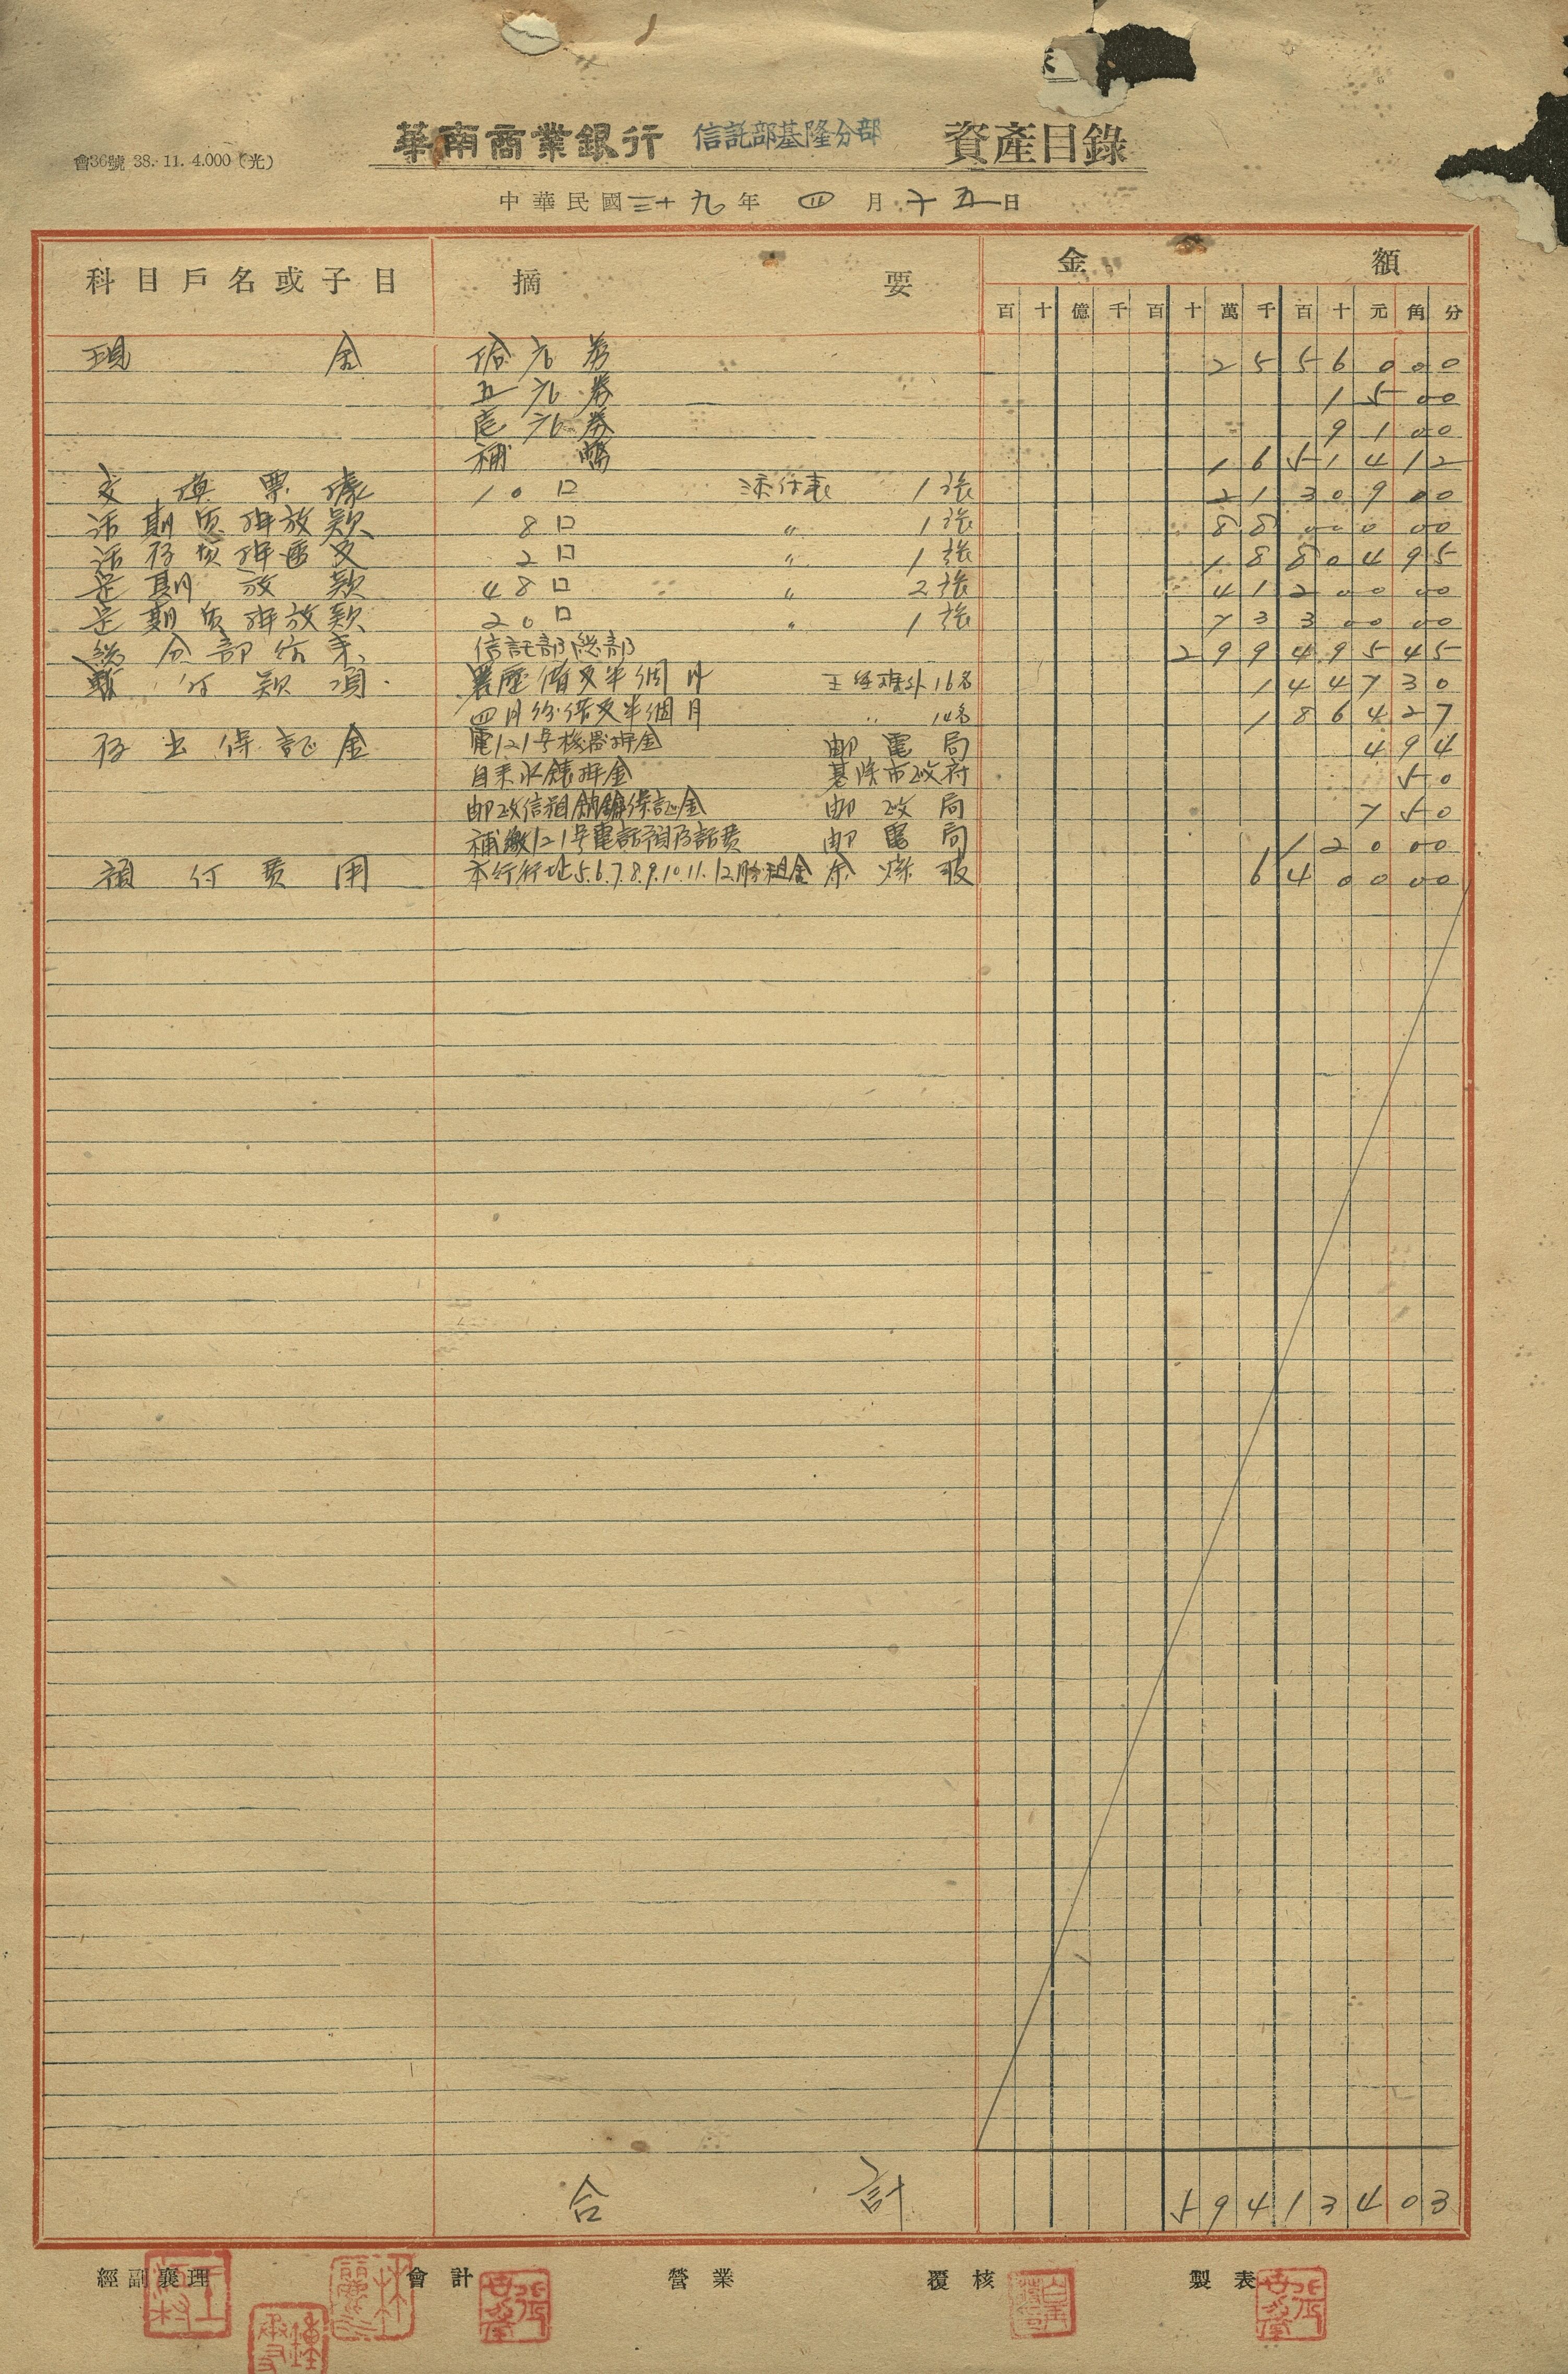 會36號 38. 11. 4.000 (光)
華南商業銀行 信託部基隆分部 資產目錄
中華民國三十九年 四 月 十五日
科目戶名或子目 摘要 金額
百 十 億 千 百 十 萬 千 百 十 元 角 分
現金 拾元券 2 5 5 6 0 0 0
五元券 1 5 0 0
壱元券 9 1 0 0
補幣 1 6 5 1 4 1 2
交換票據 10口 添付表 1張 2 1 3 0 9 0 0
活期質押放款 8口 〃 1張 8 8 0 0 0 0 0
活存質押透支 2口 〃 1張 1 8 8 0 4 9 5
定期放款 48口 〃 2張 4 1 2 0 0 0 0
定期質押放款 20口 〃 1張 7 3 3 0 0 0 0
總分部往來 信託部總部 2 9 9 4 9 5 4 5
暫付款項 農歷借支半個月 王經理外16名 1 4 4 7 3 0
四月份借支半個月 〃 14名 1 8 6 4 2 7
存出保証金 電121号機器押金 郵電局 4 9 4
自來水錶押金 基隆市政府 5 0
郵政信箱鎖鑰保証金 郵政局 7 5 0
補繳121号電話預存話費 郵電局 1 2 0 0 0
預付費用 本行行址5.6.7.8.9.10.11.12月份租金 6 4 0 0 0 0
合計 5 9 4 1 3 4 0 3
經副襄理 會計 營業 覆核 製表